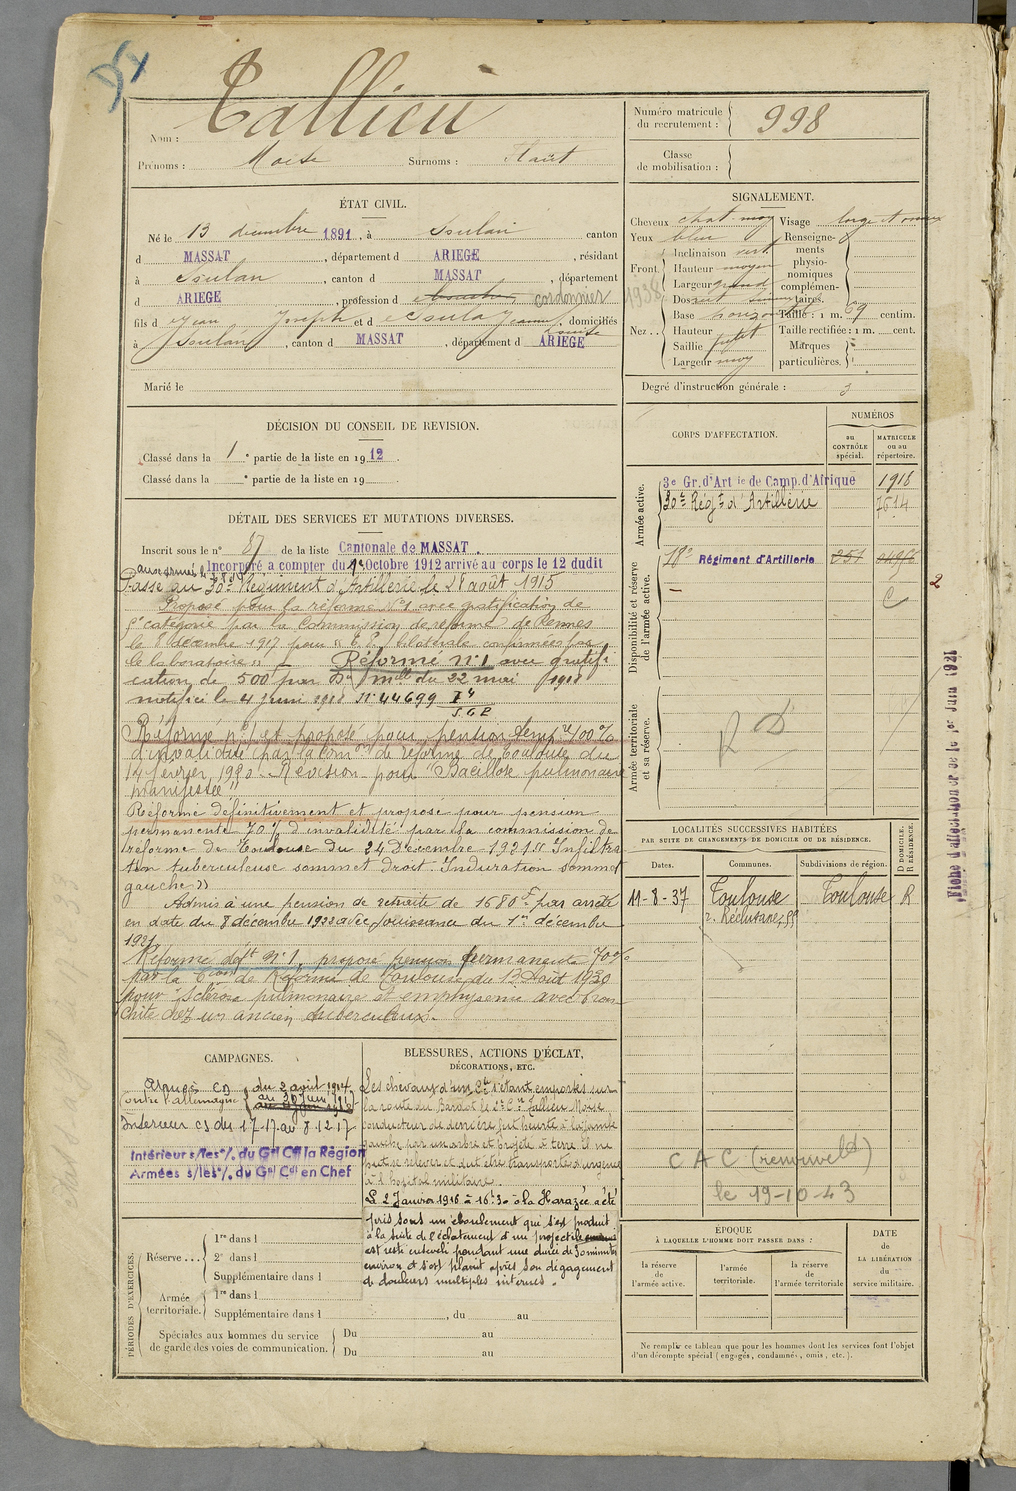 Tallieu
Nom :
Prénoms : Moïse Surnoms : Haut
Numéro matricule du recrutement : 998
Classe de mobilisation :
ÉTAT CIVIL.
Né le 13 décembre 1891, à Soulan canton
d MASSAT, département d ARIEGE, résidant
à Soulan, canton d MASSAT, département
d ARIEGE, profession d cordonnier
fils d Jean Joseph et d Soula Jeanne Louise, domiciliés
à Soulan, canton d MASSAT, département d ARIEGE
Marié le
SIGNALEMENT.
Cheveux chat. moy Visage large et
Yeux bleu Renseignements physionomiques complémentaires.
Front. Inclinaison vert.
Hauteur moyen
Largeur grand
1938
Nez .. Dos rect.
Base horizont Taille : 1 m. 69 centim.
Hauteur Taille rectifiée : 1 m. cent.
Saillie petit Marques particulières.
Largeur moy
Degré d'instruction générale : 3
DÉCISION DU CONSEIL DE REVISION.
Classé dans la 1e partie de la liste en 1912.
Classé dans la e partie de la liste en 19 .
CORPS D'AFFECTATION.
NUMÉROS
au CONTRÔLE spécial.
MATRICULE ou au répertoire.
Armée active.
3e Gr. d'Art ie de Camp. d'Afrique 1918
30e Régt d'Artillerie 7614
Disponibilité et réserve de l'armée active.
18e Régiment d'Artillerie
C
2
Armée territoriale et sa réserve.
R D
DÉTAIL DES SERVICES ET MUTATIONS DIVERSES.
Inscrit sous le n° 87 de la liste Cantonale de MASSAT.
Incorporé à compter du 1er Octobre 1912 arrivé au corps le 12 dudit
Passé au 30e Régiment d'Artillerie le 21 août 1915
Proposé pour la réforme N°1 avec gratification de
5e catégorie par la Commission de réforme de Rennes
le 8 décembre 1917 pour "T.P. bilatérale confirmée par
le laboratoire" Réformé n°1 avec gratifi-
cation de 500 par Don mlle du 22 mai 1918
notifiée le 4 juin 1918 N° 44699
Réformé n°1 et proposé pour pension temp re 100 %
d'invalidité par la com on de réforme de Toulouse du
14 février 1920. Révision pour "Bacillose pulmonaire
manifestée"
Réformé définitivement et proposé pour pension
permanente 70 % d'invalidité par la commission de
réforme de Toulouse du 24 Décembre 1921 "Infiltra-
tion tuberculeuse sommet droit. Induration sommet
gauche"
Admis à une pension de retraite de 1680 F par arrêté
en date du 8 décembre 1922 avec jouissance du 1er décembre
1921.
Réformé déft N°1, proposé pension permanente 70 %
par la Con de Réforme de Toulouse du 12 Août 1930
pour "Sclérose pulmonaire et emphysème avec bron-
chite chez un ancien tuberculeux".
LOCALITÉS SUCCESSIVES HABITÉES
PAR SUITE DE CHANGEMENTS DE DOMICILE OU DE RÉSIDENCE.
Dates. Communes. Subdivisions de région. D DOMICILE. R RÉSIDENCE.
11-8-37 Toulouse Toulouse R
CAC (renouvelé)
le 19-10-43
CAMPAGNES.
contre l'allemagne du 2 août 1914
Intérieur
Intérieur s/les o/. du Gal Cdt la Région
Armées s/les o/. du Gal Cdt en Chef
BLESSURES, ACTIONS D'ÉCLAT, DÉCORATIONS, ETC.
Les chevaux d'un s'étant emportés sur
la route du Bardot le 2e C. Tallieu Moïse
conducteur de derrière fut heurté à la jambe
gauche par un arbre et projeté à terre il ne
put se relever et dut être transporté d'urgence
à l'hôpital militaire.
Le 2 Janvier 1916 à 16h30 à la Harazée a été
pris sous un éboulement qui s'est produit
à la suite de l'éclatement d'un projectile
est resté enseveli pendant une durée de 30 minutes
environ et s'est plaint après son dégagement
de douleurs multiples internes.
PÉRIODES D'EXERCICES.
Réserve ... 1re dans l
2e dans l
Supplémentaire dans l
Armée territoriale. 1re dans l
Supplémentaire dans l , du au
Spéciales aux hommes du service de garde des voies de communication. Du au
Du au
ÉPOQUE
À LAQUELLE L'HOMME DOIT PASSER DANS :
la réserve de l'armée active.
l'armée territoriale.
la réserve de l'armée territoriale
DATE DE LA LIBÉRATION du service militaire.
Ne remplir ce tableau que pour les hommes dont les services font l'objet
d'un décompte spécial (engagés, condamnés, omis, etc.).